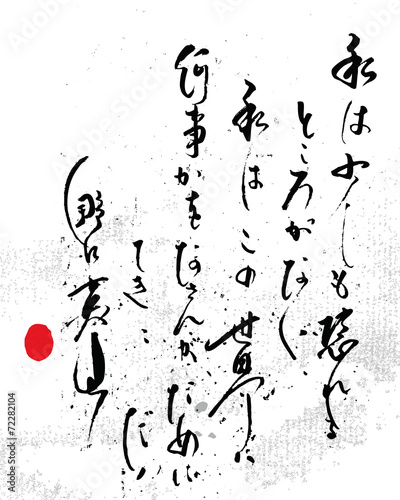 私は少しも恐れる
ところがない
私はこの世界に
何事かをなさんがために
てき
野口英
Adobe Stock | #72282104